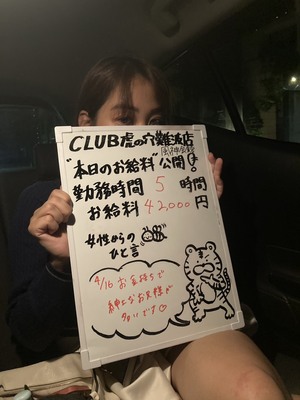 CLUB虎の穴難波店
"本日のお給料"公開!
勤務時間 5 時間
お給料 42,000 円
女性からの
ひと言
4/16 お金持ちで
紳士なお客様が
多いです♡